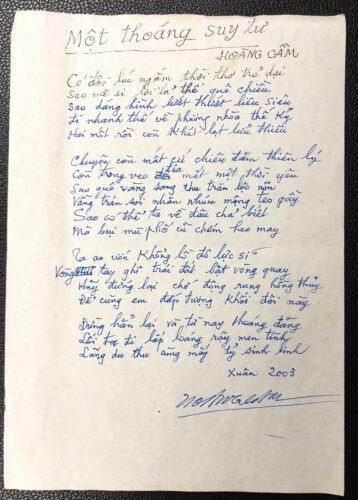 Một thoáng suy tư
HOÀNG CẦM
Có đôi lúc ngắm thời thơ trẻ dại
Sao mê si lọt lơ thế quê chiều
Sao dáng hình biết thuyết liêu siêu
đi nhanh thế về phùng nhòa thế kỷ
Hai mắt rồi còn khát lạt liêu thiêu
Chuyện con mắt cứ chiều đăm thiên lý
Còn trong veo tia mắt một thời yêu
Sao quê vàng sang thu trăn lộc nõn
Vầng trán sói nhăn nhúm mộng teo gầy
Sao có thể ta về đâu chả biết
Mà bụi mù phố cũ chớm heo may
Ta ao ước Khổng lồ đô lực sĩ
Vòng tay ghì trái đất bật vòng quay
Hãy đừng lại chớ động rung hồng thủy
Để cùng em đáp tường Khối đời này.
Dừng hẳn lại và từ nay thoáng đãng
Lối ta đi lấp loáng rẫy men tình
Lãng du thu ang mây tỷ sinh linh
Xuân 2003